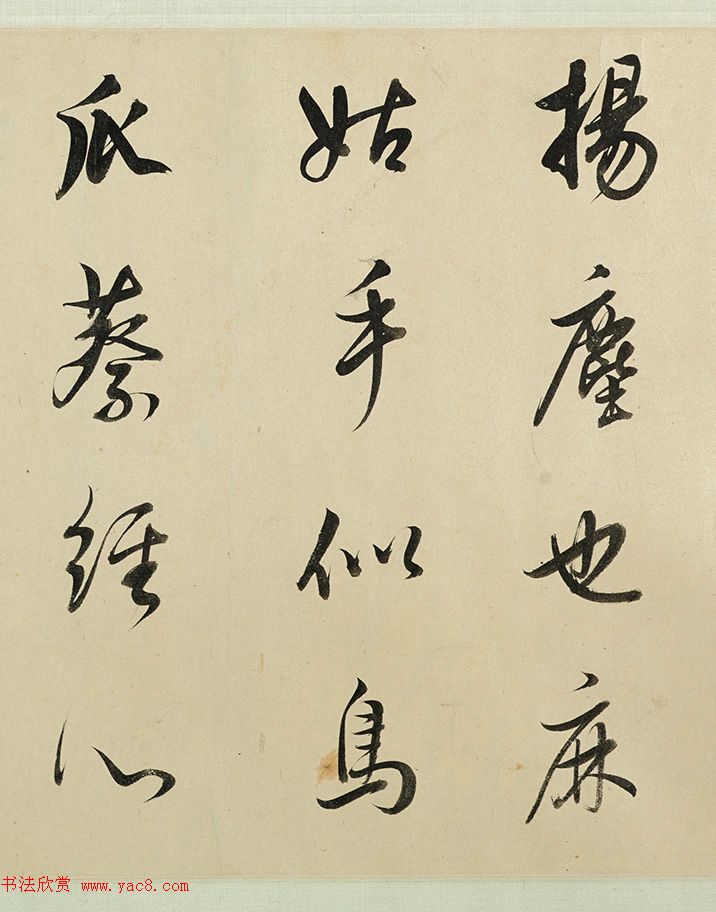 揚塵也麻
姑手似鳥
爪蔡經心
书法欣赏 www.yac8.com